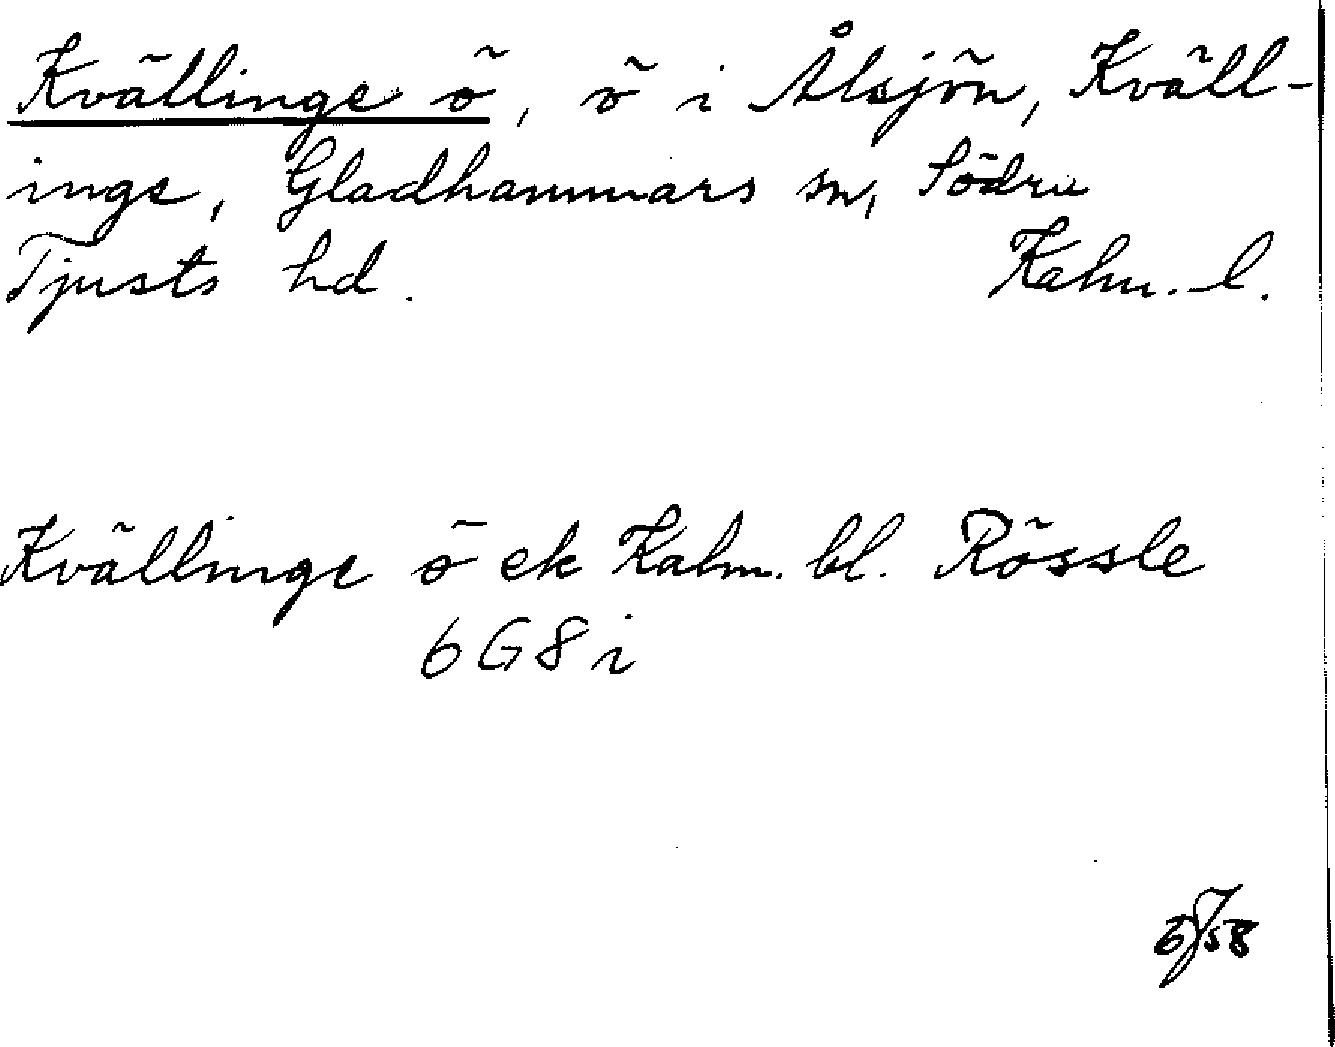 Kvällinge ö, ö i Ålsjön, Kväll-
inge, Gladhammars sn, Södra
Tjusts hd. Kalm. l.
Kvällinge ö ek Kalm. bl. Rössle
6 G 8 i